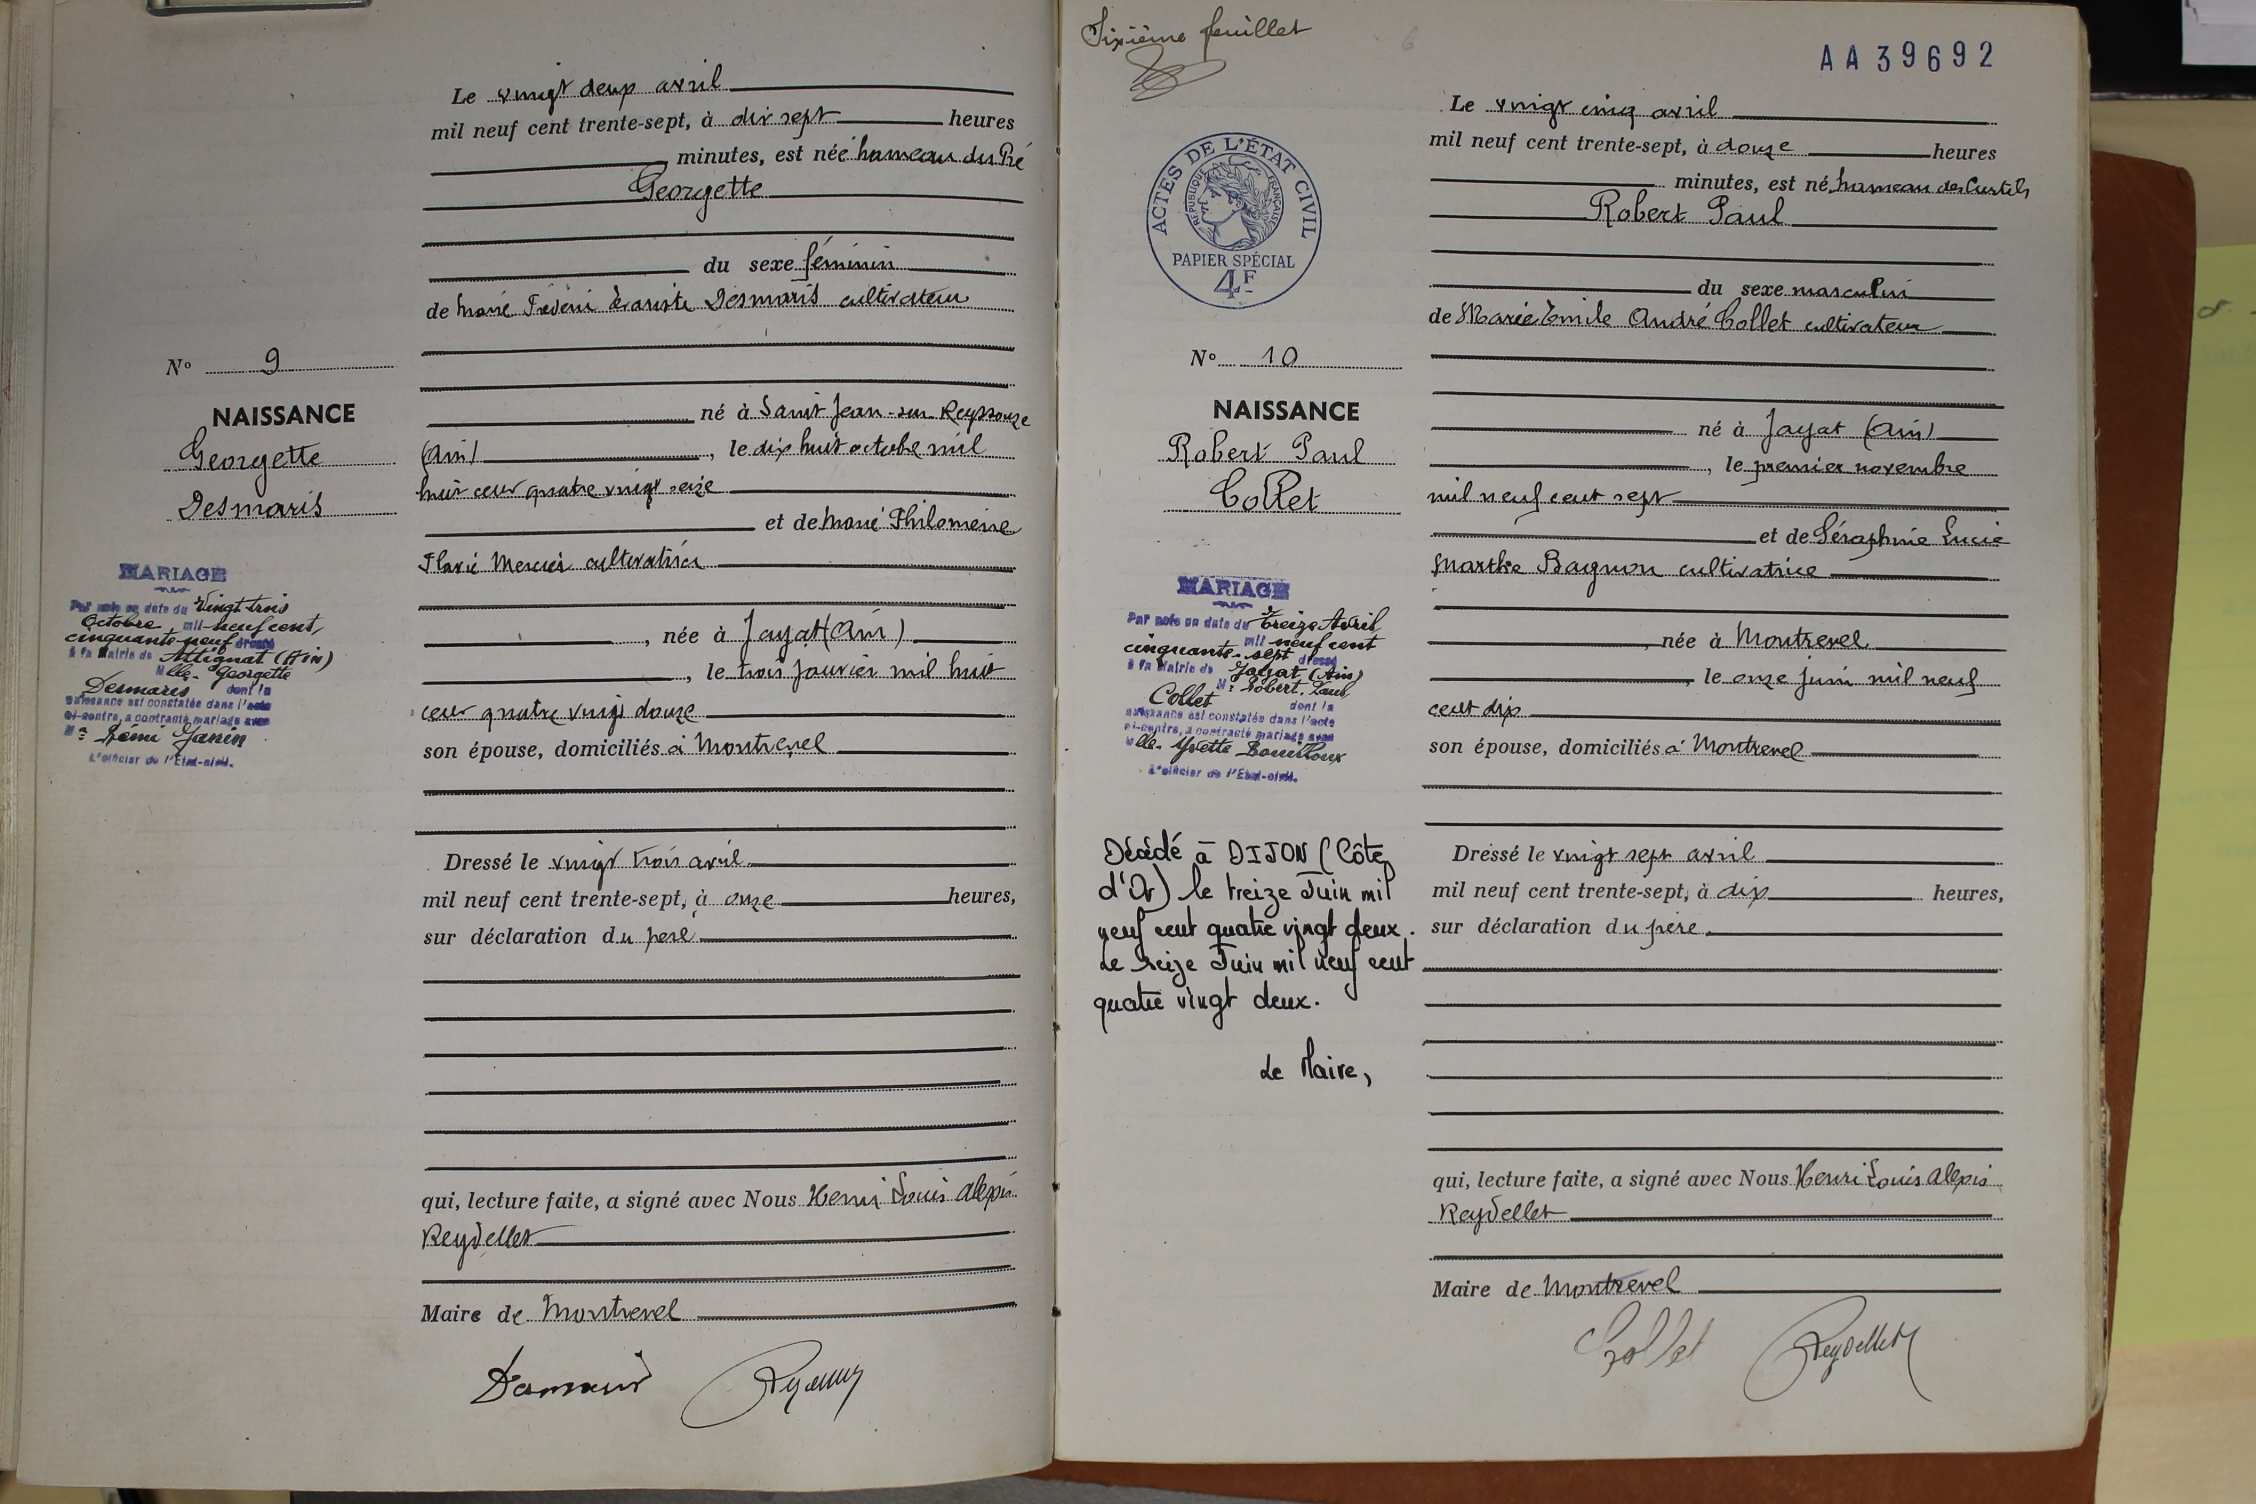 Le vingt deux avril
mil neuf cent trente-sept, à dix sept heures
minutes, est née hameau du Pré
Georgette
du sexe féminin
de Marie Frédéric Evariste Desmaris cultivateur
né à Saint Jean-sur-Reyssouze
(Ain), le dix huit octobre mil
huit cent quatre vingt seize
et de Marie Philomène
Flavie Mercier cultivatrice
, née à Jayat (Ain)
, le trois janvier mil huit
cent quatre vingt douze
son épouse, domiciliés à Montrevel
Dressé le vingt trois avril
mil neuf cent trente-sept, à onze heures,
sur déclaration du père
qui, lecture faite, a signé avec Nous Henri Louis Alexis
Reydellet
Maire de Montrevel
Desmaris
No 9
NAISSANCE
Georgette
Desmaris
MARIAGE
Par acte en date du Vingt trois
Octobre mil neuf cent,
cinquante-neuf dressé
à la Mairie de Attignat (Ain)
Mlle Georgette
Desmaris dont la
naissance est constatée dans l'acte
ci-contre, a contracté mariage avec
Mr Rémi Janin
L'officier de l'Etat-civil.
Sixième feuillet
6
AA39692
ACTES DE L'ÉTAT CIVIL
RÉPUBLIQUE FRANÇAISE
PAPIER SPÉCIAL
4F
No 10
NAISSANCE
Robert Paul
Collet
MARIAGE
Par acte en date du Treize Avril
mil neuf cent
cinquante-sept dressé
à la Mairie de Jayat (Ain)
Mr Robert, Paul
Collet dont la
naissance est constatée dans l'acte
ci-contre, a contracté mariage avec
Mlle Yvette Bouilloux
L'officier de l'Etat-civil.
Décédé à DIJON (Côte
d'Or) le treize Juin mil
neuf cent quatre vingt deux.
Le seize Juin mil neuf cent
quatre vingt deux.
Le Maire,
Le vingt cinq avril
mil neuf cent trente-sept, à douze heures
minutes, est né hameau des Curtils
Robert Paul
du sexe masculin
de Marie Emile André Collet cultivateur
né à Jayat (Ain)
, le premier novembre
mil neuf cent sept
et de Séraphine Lucie
Marthe Bagnon cultivatrice
, née à Montrevel
, le onze juin mil neuf
cent dix
son épouse, domiciliés à Montrevel
Dressé le vingt sept avril
mil neuf cent trente-sept, à dix heures,
sur déclaration du père
qui, lecture faite, a signé avec Nous Henri Louis Alexis
Reydellet
Maire de Montrevel
Collet Reydellet